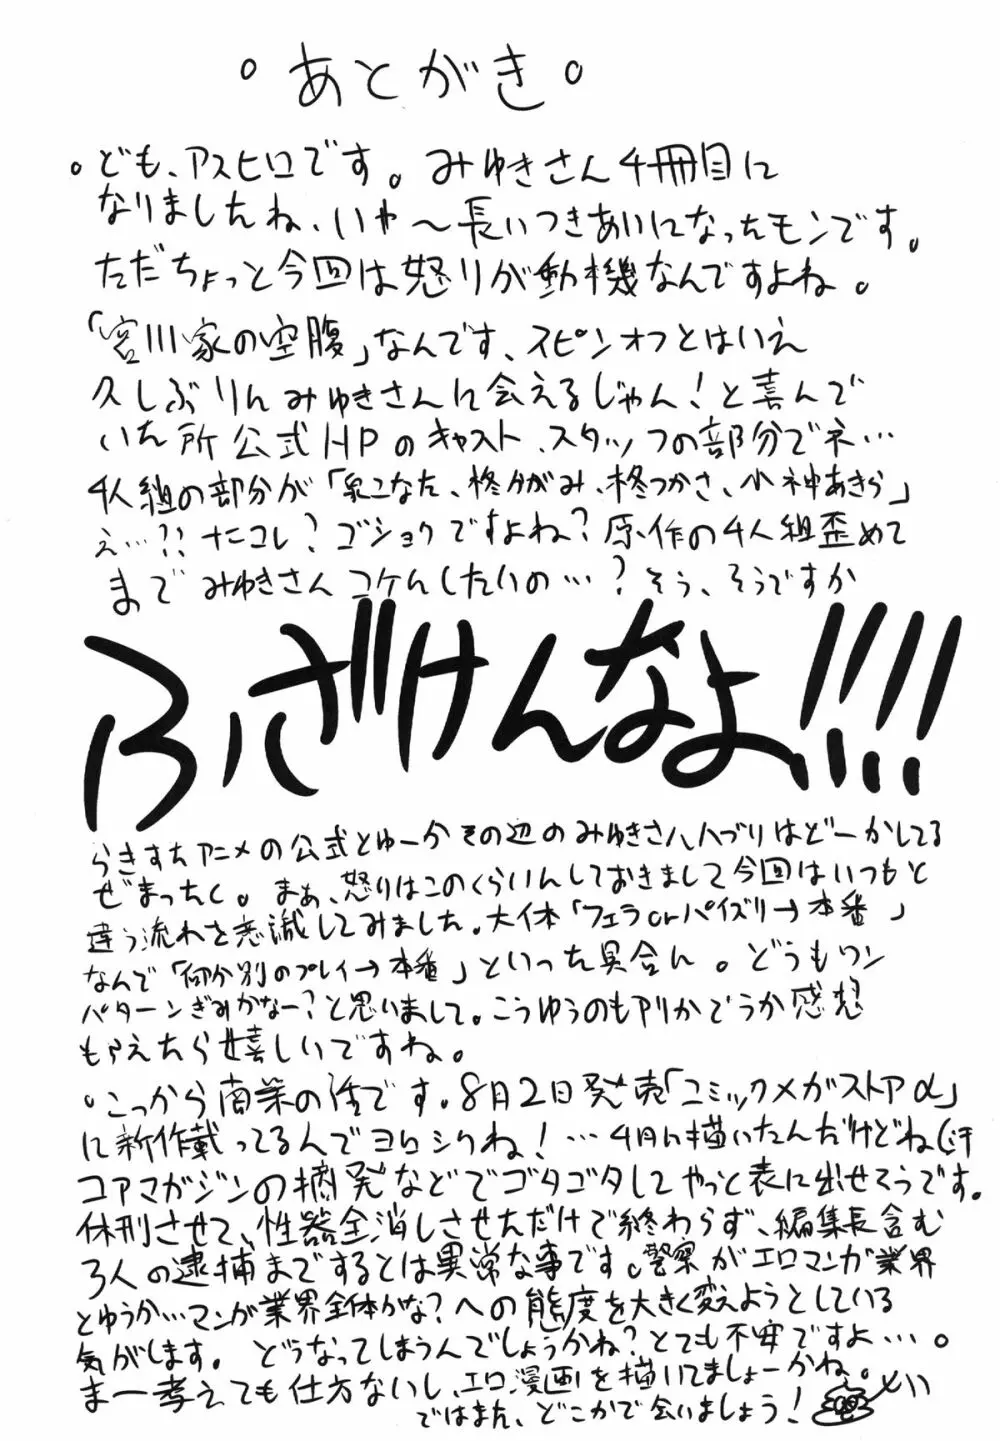 。あとがき。
。ども、アスヒロです。みゆきさん4冊目に
なりましたね、いや〜長いつきあいになったモンです。
ただちょっと今回は怒りが動機なんですよね。
「宮川家の空腹」なんです、スピンオフとはいえ
久しぶりんみゆきさんに会えるじゃん!と喜んで
いた所公式HPのキャスト、スタッフの部分でネ…
4人組の部分が「泉こなた、柊かがみ、柊つかさ、小神あきら」
え…?!ナニコレ?ゴショクですよね?原作の4人組歪めて
までみゆきさんコケんしたいの…?そう、そうですか
ふざけんなよ!!!!
らきすたアニメの公式とゆーかその辺のみゆきさんハブりはどーかしてる
ぜまったく。まぁ、怒りはこのくらいんしておきまして今回はいつもと
違う流れを意識してみました。大体「フェラorパイズリ→本番」
なんで「何か別のプレイ→本番」といった具合ん。どうもワン
パターンぎみかなー?と思いまして。こうゆうのもアリかどうか感想
もらえたら嬉しいですね。
。こっから商業の話です。8月2日発売「コミックメガストアα」
に新作載ってるんでヨロシクね!…4月に描いたんだけどね(汗
コアマガジンの摘発などでゴタゴタしてやっと表に出せそうです。
休刊させて、性器全消しさせただけで終わらず、編集長含む
3人の逮捕までするとは異常な事です。警察がエロマンガ業界
とゆうか…マンガ業界全体がな?への態度を大きく変えようとしている
気がします。どうなってしまうんでしょうかね?とても不安ですよ…。
まー考えても仕方ないし、エロ漫画を描いてましょーかね。
ではまた、どこかで会いましょう!